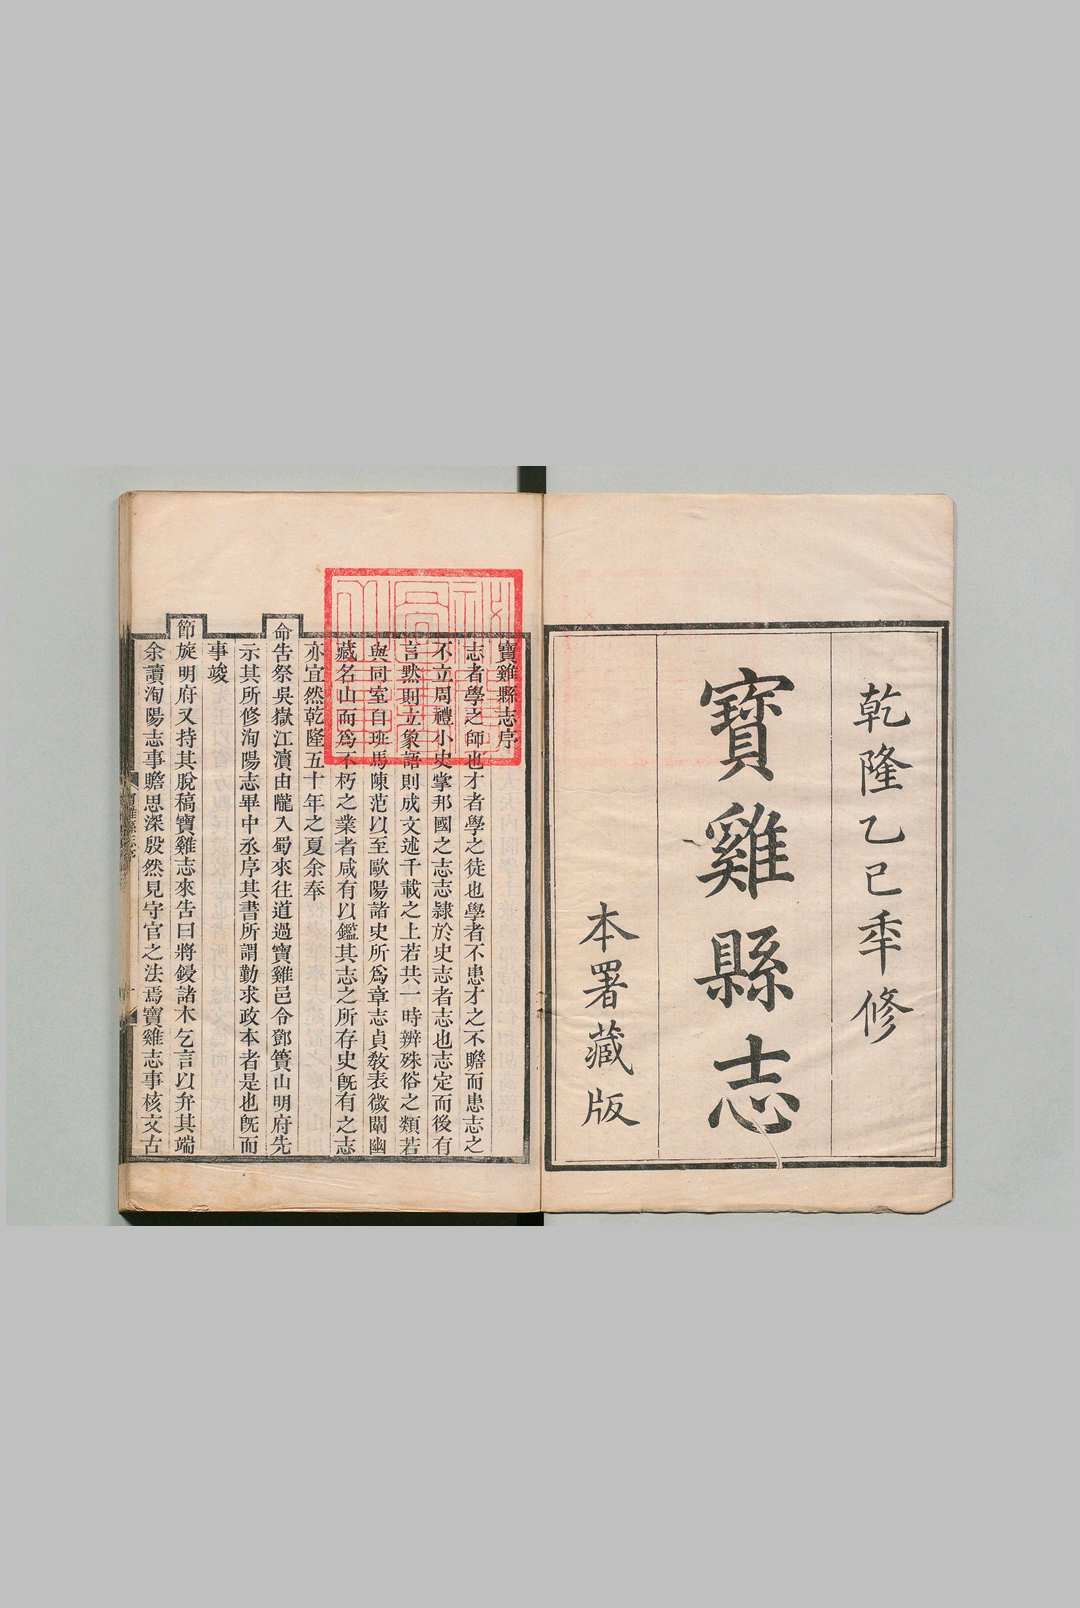 乾隆乙巳秊修
寶雞縣志
本署藏版
寶雞縣志序
志者學之師也才者學之徒也學者不患才之不贍而患志之
不立周禮小史掌邦國之志志隷於史志者志也志定而後有
言黙則立象語則成文述千載之上若共一時辨殊俗之類若
與同室自班馬陳范以至歐陽諸史所爲章志貞敎表微闡幽
藏名山而爲不朽之業者咸有以鑑其志之所存史旣有之志
亦宜然乾隆五十年之夏余奉
命告祭吳嶽江瀆由隴入蜀來往道過寶雞邑令鄧簣山明府先
示其所修洵陽志畢中丞序其書所謂勤求政本者是也旣而
事竣
節旋明府又持其脫稿寶雞志來告曰將鋟諸木乞言以弁其端
余讀洵陽志事贍思深殷然見守官之法焉寶雞志事核文古